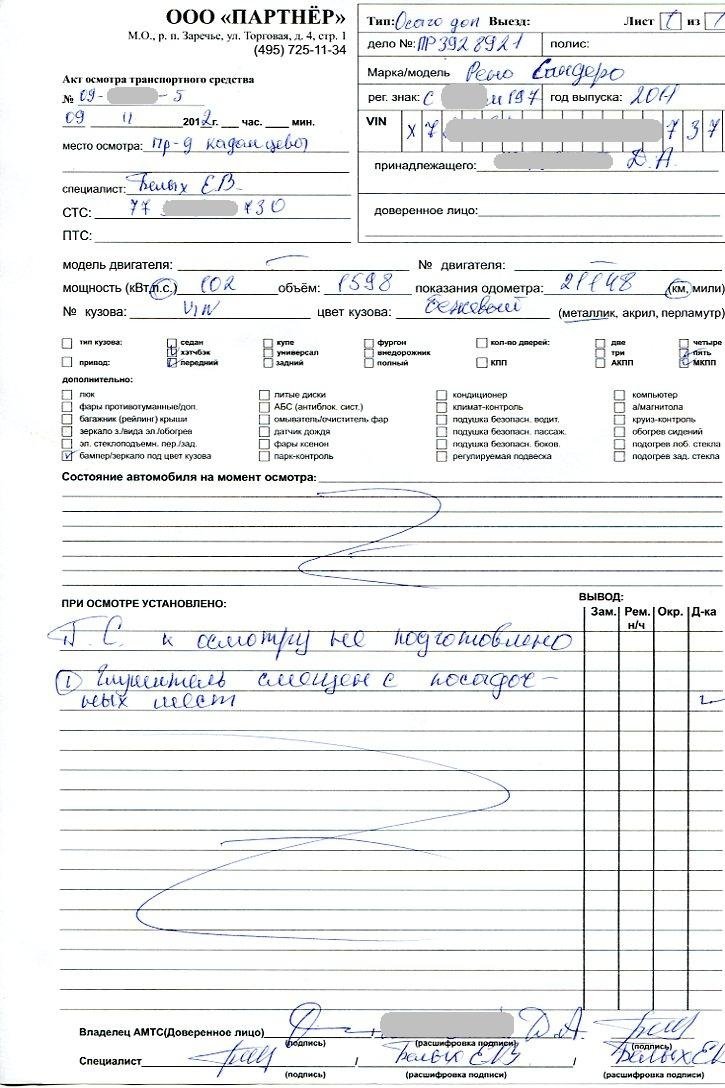 ООО «ПАРТНЁР»
М.О., р. п. Заречье, ул. Торговая, д. 4, стр. 1
(495) 725-11-34
Тип: Осаго доп Выезд: Лист 1 из 1
дело №: ПР3928921 полис:
Акт осмотра транспортного средства
№ 09- -5
09 11 2012г. час. мин.
место осмотра: пр-д
специалист: Белых Е.В.
СТС: 77 730
ПТС:
Марка/модель Рено Сандеро
рег. знак: С м197 год выпуска: 2011
VIN Х 7 7 3 7
принадлежащего: Д.А.
доверенное лицо:
модель двигателя: — № двигателя: —
мощность (кВт,л.с.) 102 объём: 1598 показания одометра: (км, мили)
№ кузова: VIN цвет кузова: бежевый (металлик, акрил, перламутр)
тип кузова: седан купе фургон кол-во дверей: две четыре
хэтчбэк универсал внедорожник три пять
привод: передний задний полный КПП АКПП МКПП
дополнительно:
люк литые диски кондиционер компьютер
фары противотуманные/доп. АБС (антиблок. сист.) климат-контроль а/магнитола
багажник (рейлинг) крыши омыватель/очиститель фар подушка безопасн. водит. круиз-контроль
зеркало з./вида эл./обогрев датчик дождя подушка безопасн. пассаж. обогрев сидений
эл. стеклоподъемн. пер./зад. фары ксенон подушка безопасн. боков. подогрев лоб. стекла
бампер/зеркало под цвет кузова парк-контроль регулируемая подвеска подогрев зад. стекла
Состояние автомобиля на момент осмотра:
ПРИ ОСМОТРЕ УСТАНОВЛЕНО: ВЫВОД:
Зам. Рем. н/ч Окр. Д-ка
Т.С. к осмотру не подготовлено
1 Глушитель смещен с посадоч-
ных мест
Владелец АМТС(Доверенное лицо) Д.А.
(подпись) (расшифровка подписи) (подпись)
Специалист / Белых Е В / Белых Е В
(подпись) (расшифровка подписи) (расшифровка подписи)